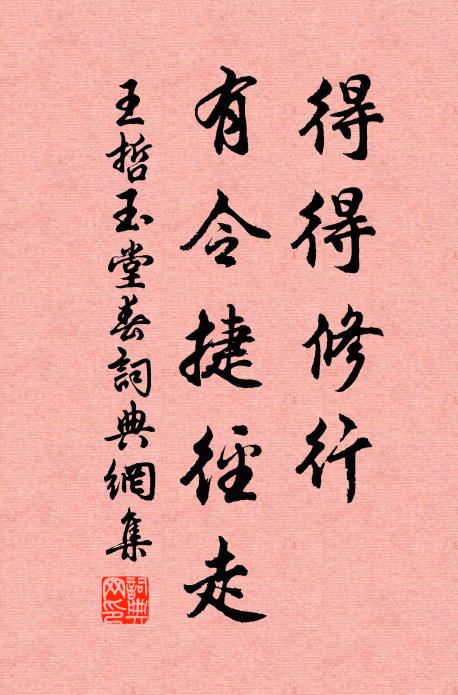 得得修行
有令捷徑走
王哲玉堂春詞典網集
詞典網印